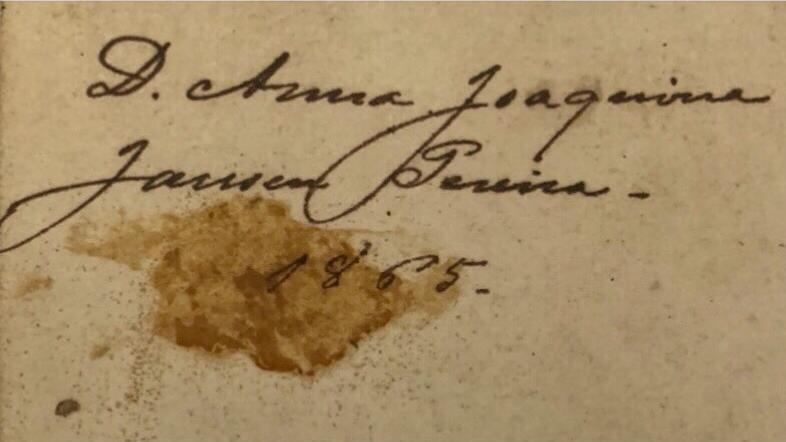 D. Anna Joaquina
Jansen Pereira -
1865.